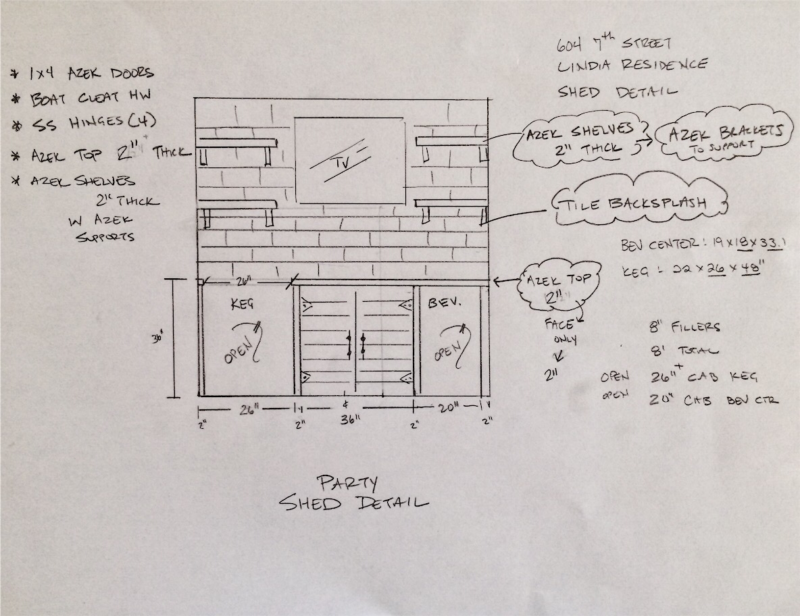 604 7th STREET
LINDIA RESIDENCE
SHED DETAIL
* 1x4 AZEK DOORS
* BOAT CLEAT HW
* SS HINGES (4)
* AZEK TOP 2" THICK
* AZEK SHELVES
2" THICK
W AZEK
SUPPORTS
TV
AZEK SHELVES
2" THICK
AZEK BRACKETS
TO SUPPORT
TILE BACKSPLASH
BEV CENTER: 19 x 18 x 33.1
KEG: 22 x 26 x 48"
AZEK TOP
2"
FACE
ONLY
2"
8" FILLERS
8' TOTAL
OPEN 26"+ CAB KEG
OPEN 20" CAB BEV CTR
26"
KEG
OPEN
BEV.
OPEN
36"
26"
36"
20"
2"
2"
2"
2"
PARTY
SHED DETAIL